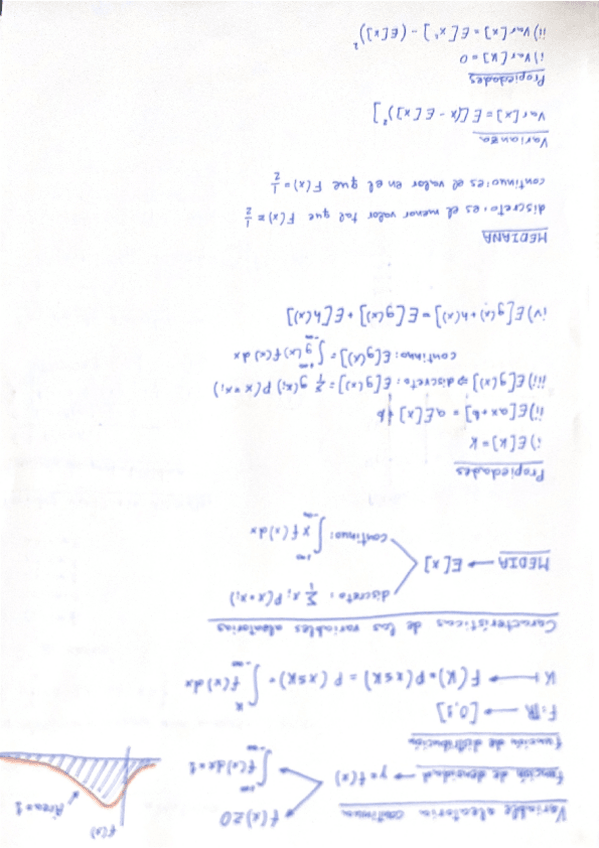 Variable aleatoria continua
f(x) ≥ 0
función de densidad → y = f(x)
∫_{-∞}^{+∞} f(x) dx = 1
f(x)
Área = 1
función de distribución
F: ℝ → [0,1]
K ↦ F(K) = P(x ≤ K) = P(x ≤ K) = ∫_{-∞}^{K} f(x) dx
Características de las variables aleatorias
discreto: Σ_i x_i P(x=x_i)
MEDIA → E[x]
continuo: ∫_{-∞}^{+∞} x f(x) dx
Propiedades
i) E[K] = K
ii) E[ax+b] = a E[x] + b
iii) E[g(x)] ⇒ discreto: E[g(x)] = Σ_i g(x_i) P(x=x_i)
continuo: E[g(x)] = ∫_{-∞}^{+∞} g(x) f(x) dx
iv) E[g(x)+h(x)] = E[g(x)] + E[h(x)]
MEDIANA
discreto: es el menor valor tal que F(x) ≥ 1/2
continuo: es el valor en el que F(x) = 1/2
Varianza
Var[x] = E[(x - E[x])²]
Propiedades
i) Var[K] = 0
ii) Var[x] = E[x²] - (E[x])²